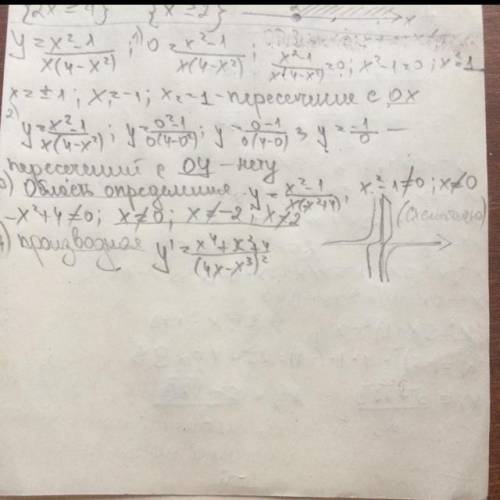 {2x ≥ 4} {x ≥ 2} x
y = x²-1/x(4-x²) ; 1) 0 = x²-1/x(4-x²) ; x²-1/x(4-x²) = 0 ; x²-1=0 ; x²=1
x = ±1 ; x₁=-1 ; x₂=1 - пересечение с OX
2) y = x²-1/x(4-x²) ; y = 0²-1/0(4-0²) ; y = 0-1/0(4-0) ; y = -1/0 —
пересечений с OY - нету
3) Область определения y = x²-1/x(-x²+4) ; x²-1≠0 ; x≠0
-x²+4≠0 ; x≠0 ; x≠-2 ; x≠2
производная y' = x⁴+x²+4/(4x-x³)²